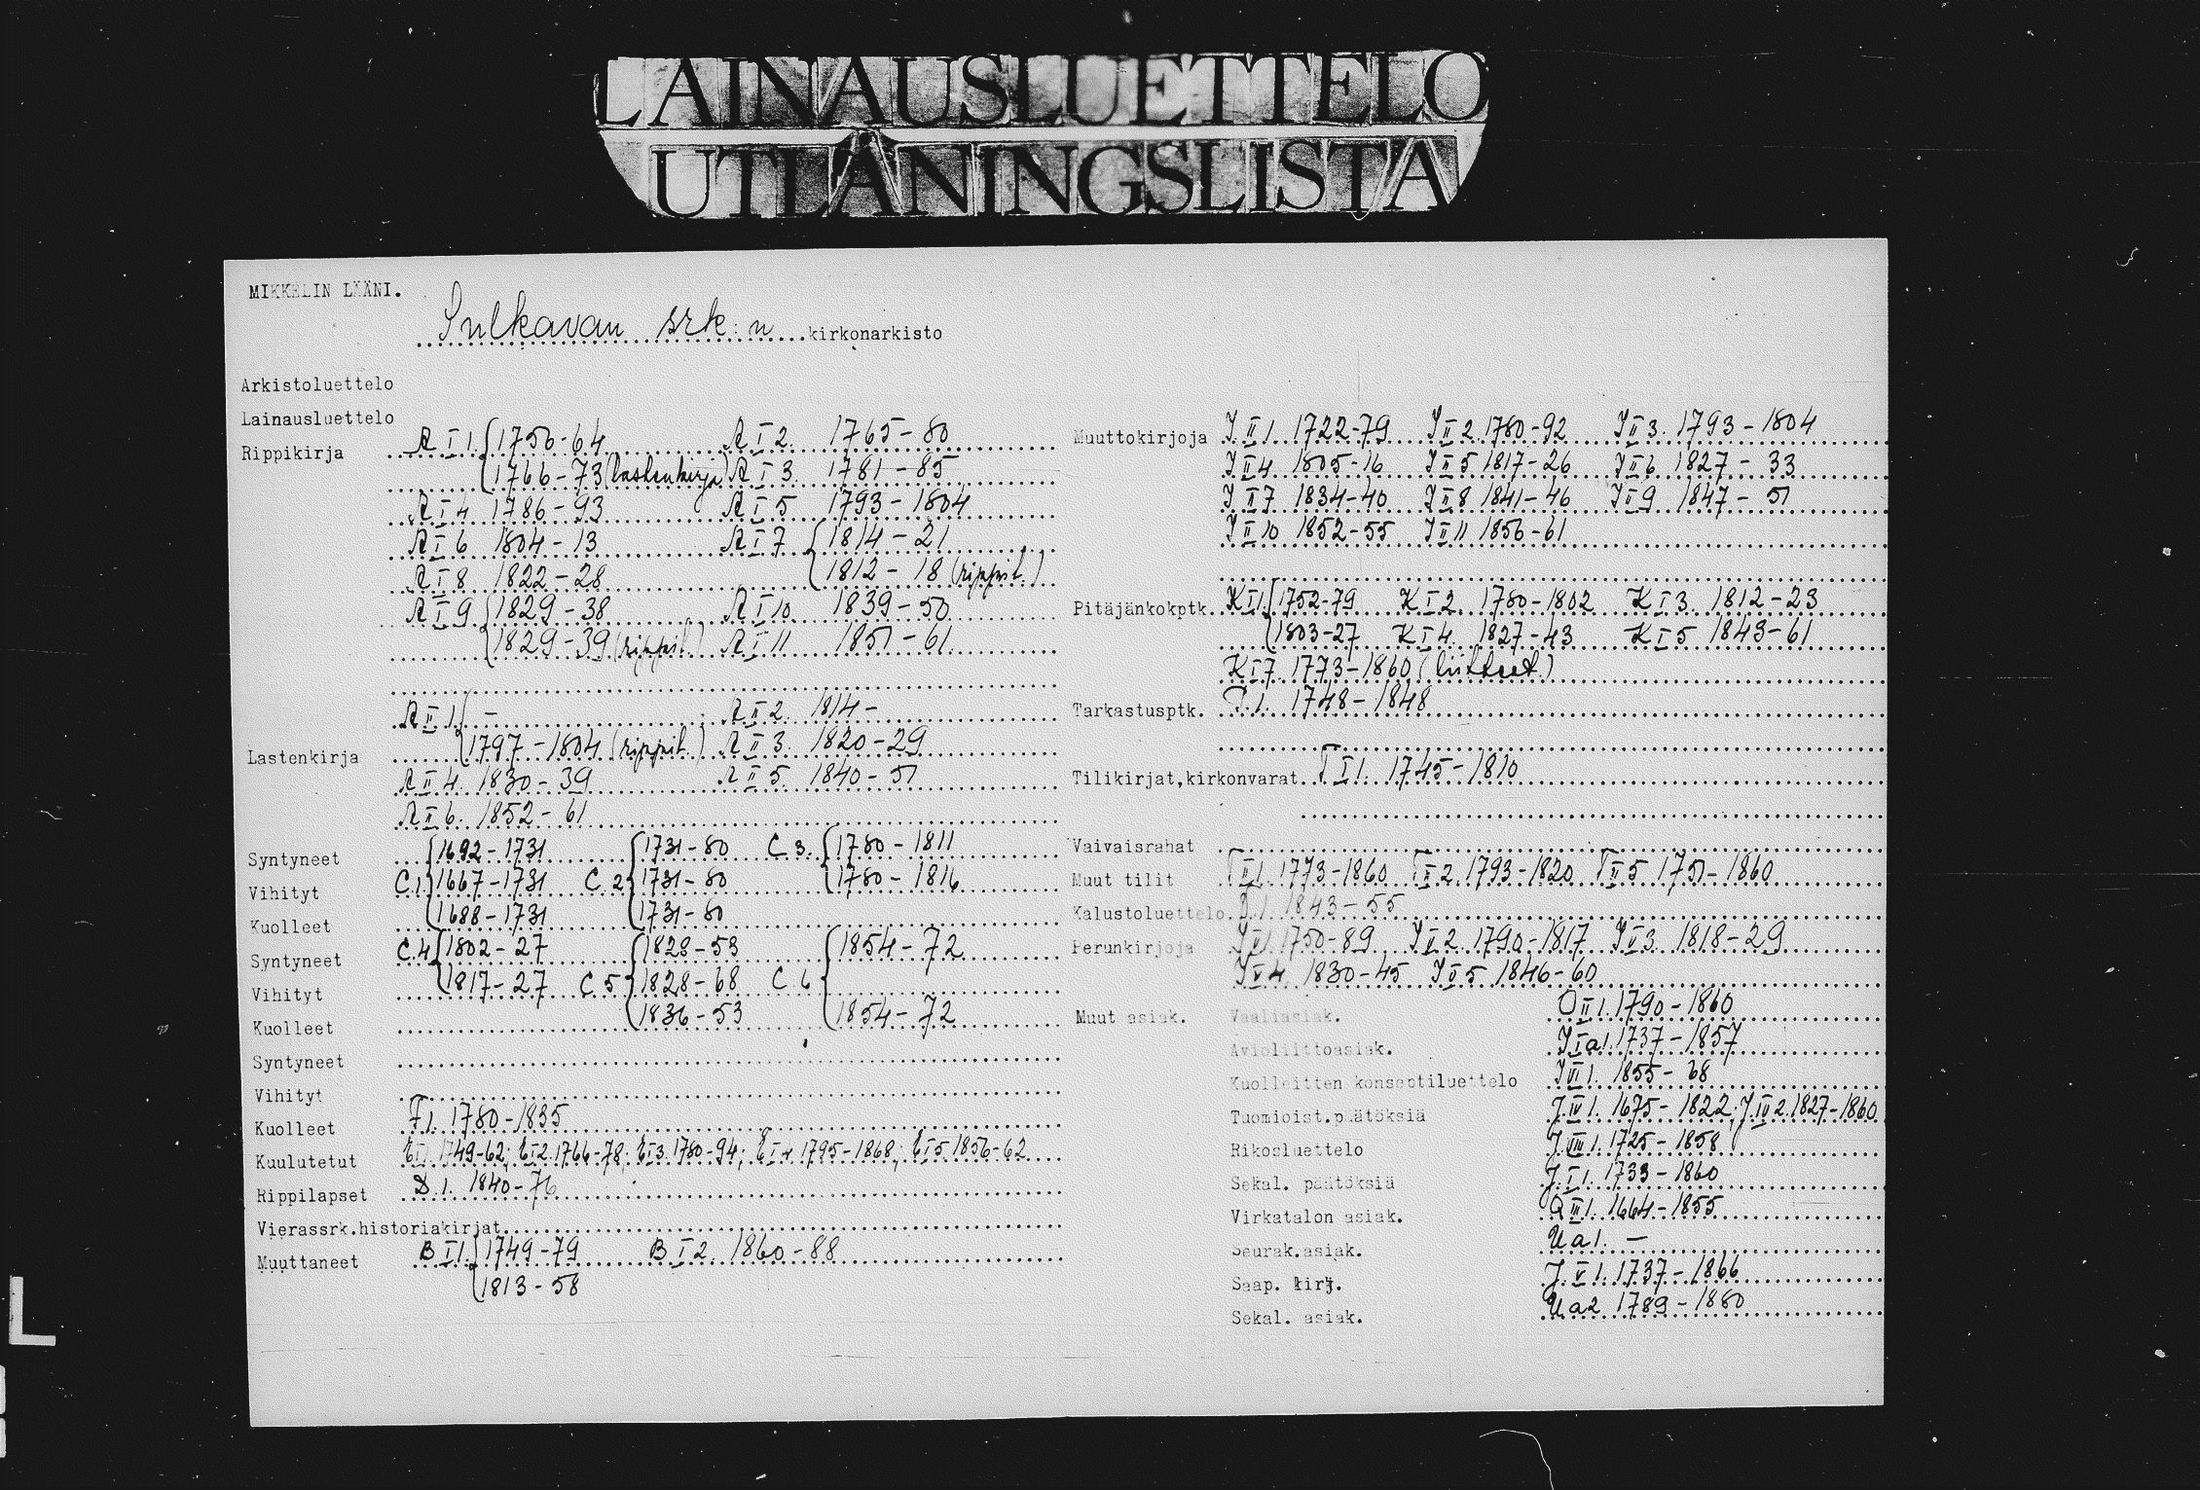 LAINAUSLUETTELO
UTLÅNINGSLISTA
MIKKELIN LÄÄNI.
Sulkavan srk:n kirkonarkisto
Arkistoluettelo
Lainausluettelo
Rippikirja R I 1. 1756-64 R I 2. 1765-80
1766-73 (lastenkirja) R I 3. 1781-85
R I 4 1786-93 R I 5 1793-1804
R I 6 1804-13 R I 7 1814-21
R I 8 1822-28 1812-18 (rippil.)
R I 9 1829-38 R I 10. 1839-50
1829-39 (rippil.) R I 11 1851-61
R II 1. - R II 2. 1814-
Lastenkirja 1797-1804 (rippil.) R II 3. 1820-29
R II 4. 1830-39 R II 5 1840-51
R II 6. 1852-61
Syntyneet 1692-1731 1731-80 C 3. 1780-1811
Vihityt C.1. 1667-1731 C.2 1731-80 1780-1816
Kuolleet 1688-1731 1731-80
Syntyneet C.4 1802-27 1828-53 1854-72
Vihityt 1817-27 C 5 1828-68 C 6
Kuolleet 1836-53 1854-72
Syntyneet
Vihityt
Kuolleet F1. 1780-1835
Kuulutetut 1749-62; EI2. 1766-78; EI3. 1780-94; EI4. 1795-1868; EI5. 1856-62
Rippilapset D.1. 1840-76
Vierassrk.historiakirjat
Muuttaneet B I 1. 1749-79 B I 2. 1860-88
1813-58
Muuttokirjoja J II 1. 1722-79 J II 2. 1780-92 J II 3. 1793-1804
J II 4 1805-16 J II 5 1817-26 J II 6 1827-33
J II 7 1834-40 J II 8 1841-46 J II 9 1847-51
J II 10 1852-55 J II 11 1856-61
Pitäjänkokptk. K I 1. 1752-79 K I 2. 1780-1802 K I 3. 1812-23
1803-27 K I 4. 1827-43 K I 5 1843-61
K I 7 1773-1860 (liitteet)
Tarkastusptk. P.1. 1748-1848
Tilikirjat,kirkonvarat T I 1. 1745-1810
Vaivaisrahat
Muut tilit T II 1. 1773-1860 T II 2. 1793-1820 T II 5 1751-1860
Kalustoluettelo. R.1. 1843-55
Perunkirjoja J V 1. 1750-89 J V 2. 1790-1817 J V 3. 1818-29
J V 4. 1830-45 J V 5 1846-60
Muut asiak. Vaaliasiak. O II 1. 1790-1860
Avioliittoasiak. J I a 1. 1737-1857
Kuolleitten konseptiluettelo 1855-68
Tuomioist.päätöksiä J IV 1. 1675-1822; J IV 2. 1827-1860
Rikosluettelo J VIII 1. 1725-1858
Sekal. päätöksiä 1733-1860
Virkatalon asiak. Q III 1. 1664-1855
Seurak.asiak. U a 1. -
Saap. kirj. J. V 1. 1737-1866
Sekal. asiak. U a 2 1789-1880